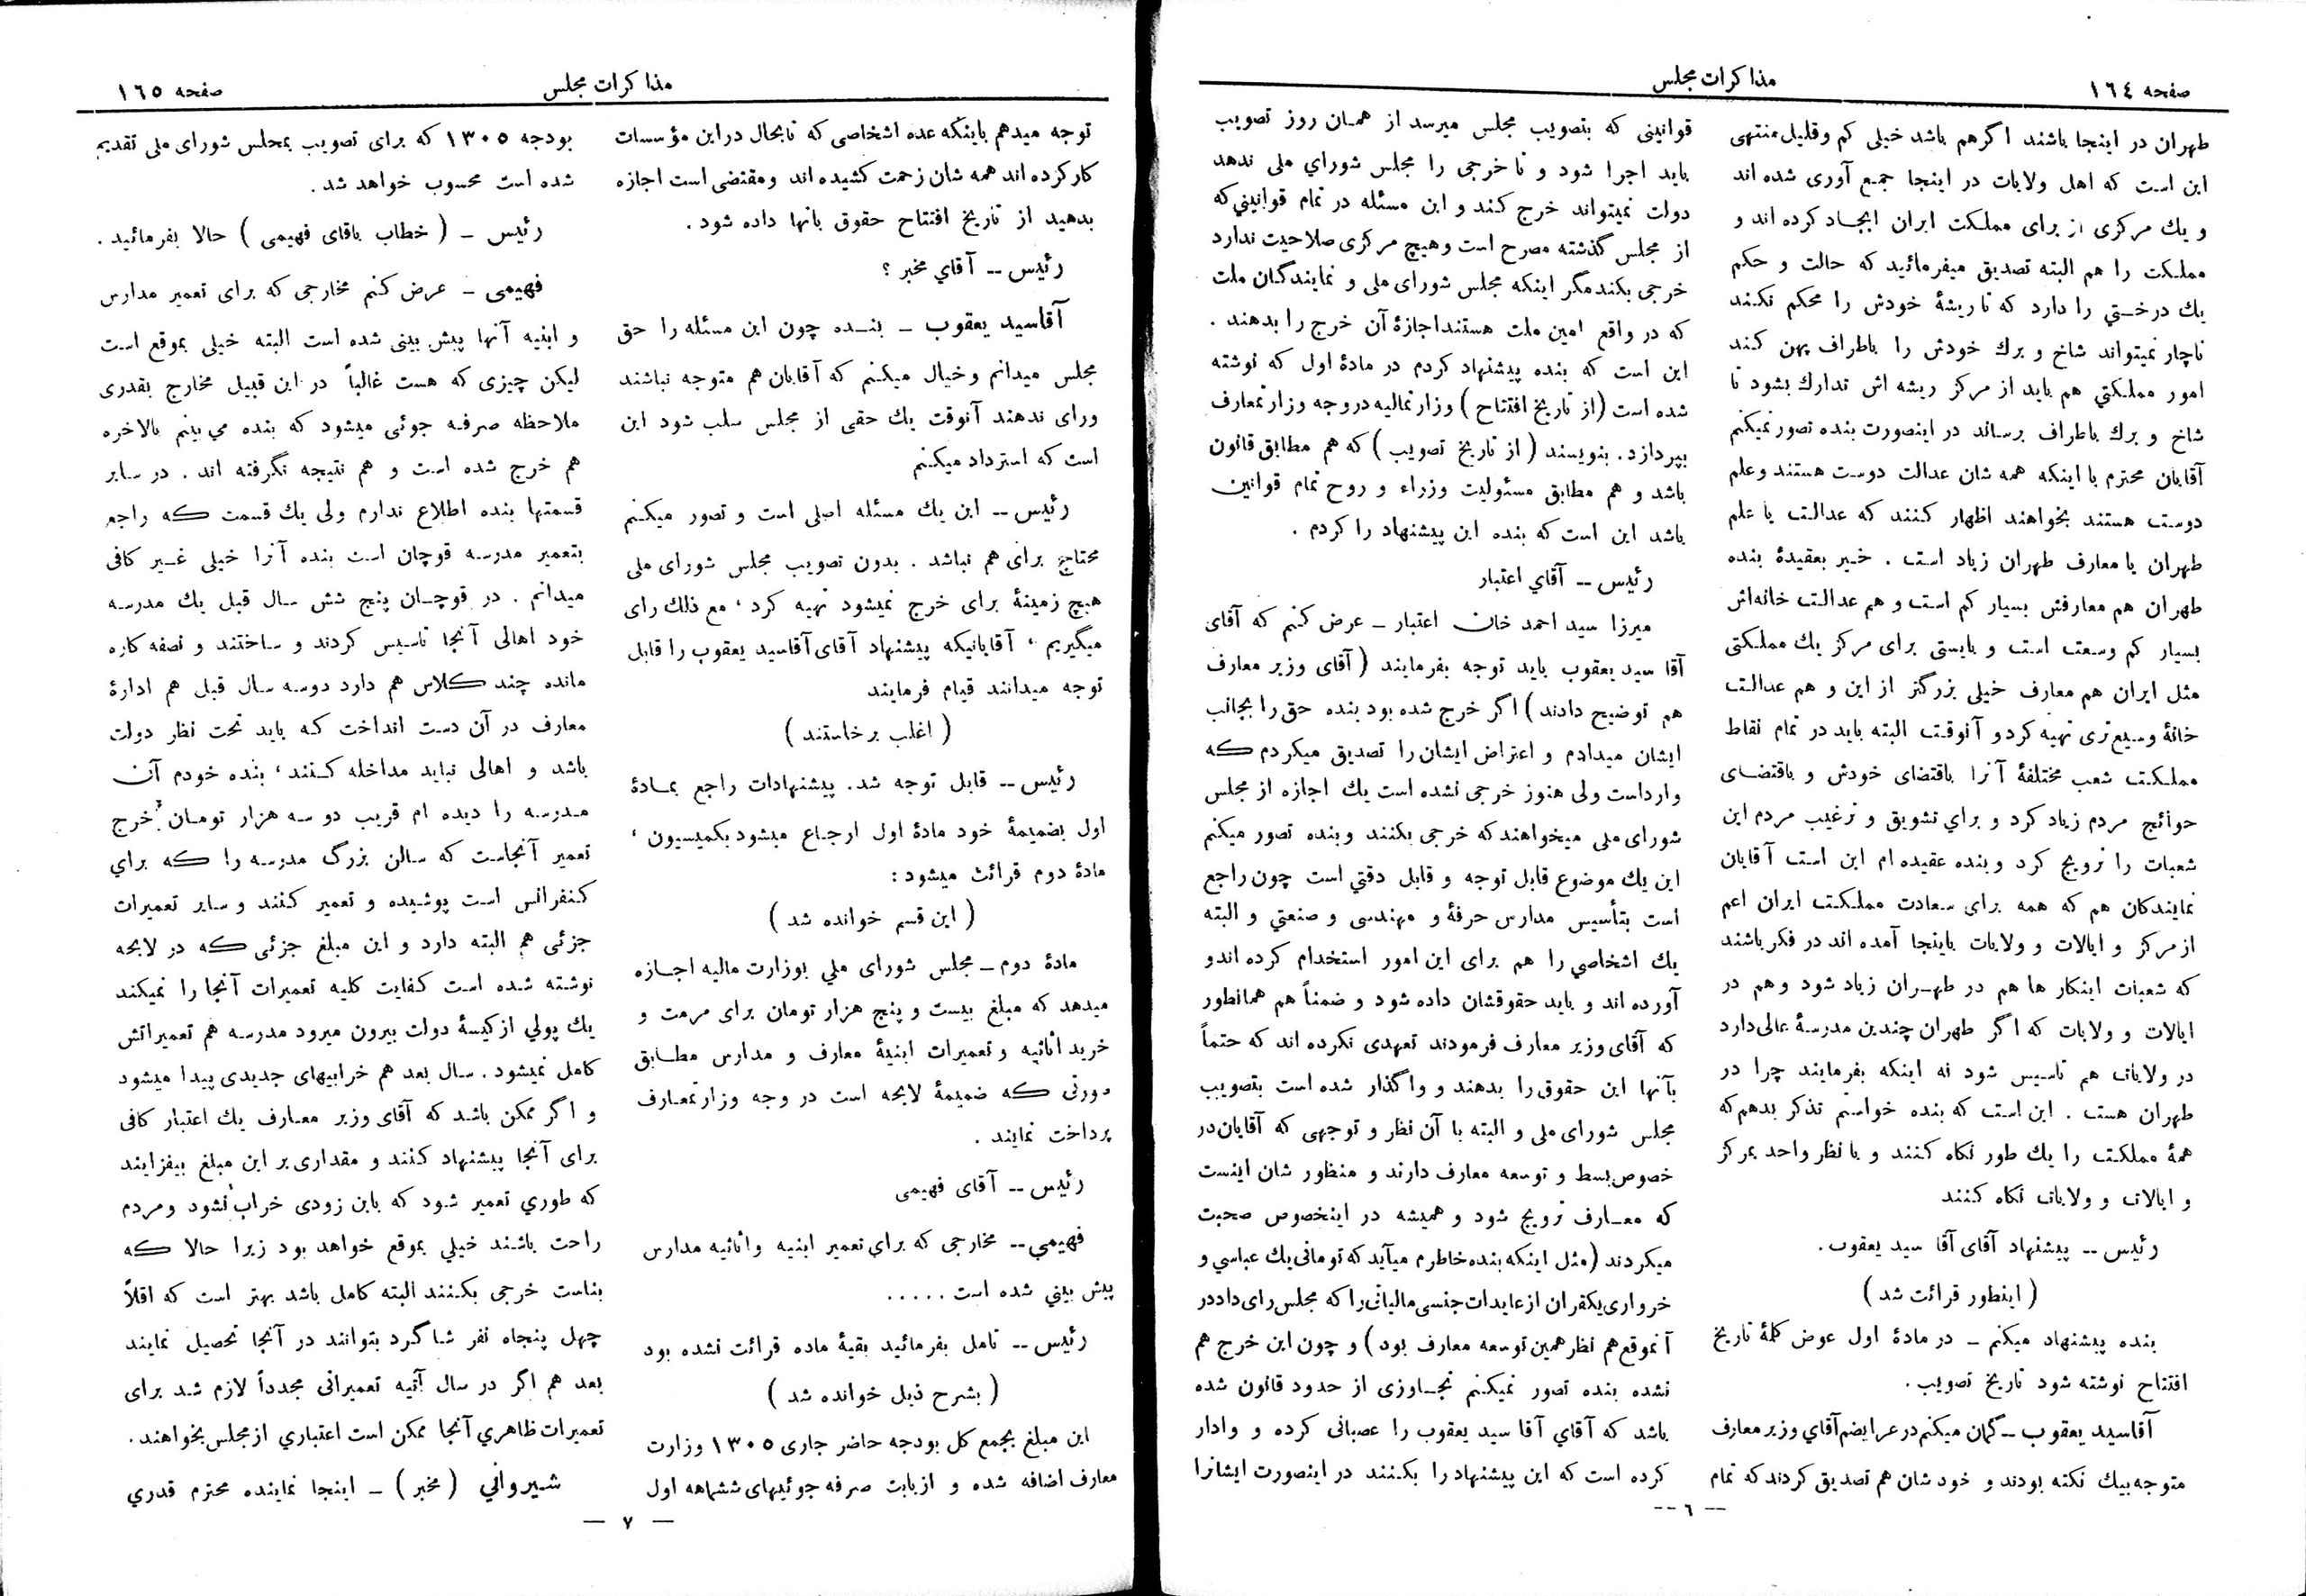 صفحه ١٦٤
مذاکرات مجلس
طهران در اینجا باشند اگر هم باشد خیلی کم و قلیل منتهی
این است که اهل ولایات در اینجا جمع آوری شده اند
و یك مرکزی از برای مملکت ایران ایجاد کرده اند و
مملکت را هم البته تصدیق میفرمائید که حالت و حکم
یك درختي را دارد که تا ریشهٔ خودش را محکم نکند
ناچار نمیتواند شاخ و برك خودش را باطراف پهن کند
امور مملکتي هم باید از مرکز ریشه اش تدارك بشود تا
شاخ و برك باطراف برساند در اینصورت بنده تصور نمیکنم
آقایان محترم با اینکه همه شان عدالت دوست هستند وعلم
دوست هستند بخواهند اظهار کنند که عدالت یا علم
طهران یا معارف طهران زیاد است . خیر بعقیدهٔ بنده
طهران هم معارفش بسیار کم است و هم عدالت خانه اش
بسیار کم وسعت است و بایستی برای مرکز یك مملکتی
مثل ایران هم معارف خیلی بزرگتر از این و هم عدالت
خانهٔ وسیع تری تهیه کرد و آنوقت البته باید در تمام نقاط
مملکت شعب مختلفهٔ آنرا باقتضای خودش و باقتضای
حوائج مردم زیاد کرد و براي تشویق و ترغیب مردم این
شعبات را ترویج کرد و بنده عقیده ام این است آقایان
نمایندکان هم که همه برای سعادت مملکت ایران اعم
از مرکز و ایالات و ولایات باینجا آمده اند در فکر باشند
که شعبات اینکار ها هم در طهران زیاد شود وهم در
ایالات و ولایات که اگر طهران چندین مدرسهٔ عالی دارد
در ولایات هم تاسیس شود نه اینکه بفرمایند چرا در
طهران هست . این است که بنده خواستم تذکر بدهم که
همهٔ مملکت را یك طور نکاه کنند و با نظر واحد بمرکز
و ایالات و ولایات نکاه کنند
رئیس -- پیشنهاد آقای آقا سید یعقوب .
( اینطور قرائت شد )
بنده پیشنهاد میکنم - در مادهٔ اول عوض کلمهٔ تاریخ
افتتاح نوشته شود تاریخ تصویب .
آقاسید یعقوب - گمان میکنم در عرایضم آقاي وزیر معارف
متوجه بیك نکته بودند و خودشان هم تصدیق کردند که تمام
قوانینی که بتصویب مجلس میرسد از همان روز تصویب
باید اجرا شود و تا خرجی را مجلس شوراي ملی ندهد
دولت نمیتواند خرج کند و این مسئله در تمام قوانیني که
از مجلس گذشته مصرح است و هیچ مرکزی صلاحیت ندارد
خرجی بکند مگر اینکه مجلس شورای ملی و نمایندگان ملت
که در واقع امین ملت هستند اجازهٔ آن خرج را بدهند .
این است که بنده پیشنهاد کردم در مادهٔ اول که نوشته
شده است (از تاریخ افتتاح) وزارتمالیه در وجه وزارتمعارف
بپردازد . بنویسند ( از تاریخ تصویب ) که هم مطابق قانون
باشد و هم مطابق مسئولیت وزراء و روح تمام قوانین
باشد این است که بنده این پیشنهاد را کردم .
رئیس -- آقاي اعتبار
میرزا سید احمد خان اعتبار - عرض کنم که آقای
آقا سید یعقوب باید توجه بفرمایند ( آقای وزیر معارف
هم توضیح دادند ) اگر خرج شده بود بنده حق را بجانب
ایشان میدادم و اعتراض ایشان را تصدیق میکردم که
وارداست ولی هنوز خرجی نشده است یك اجازه از مجلس
شورای ملی میخواهند که خرجی بکنند و بنده تصور میکنم
این یك موضوع قابل توجه و قابل دقتي است چون راجع
است بتأسیس مدارس حرفهٔ و مهندسی و صنعتي و البته
یك اشخاصي را هم برای این امور استخدام کرده اندو
آورده اند و باید حقوقشان داده شود و ضمناً هم همانطور
که آقای وزیر معارف فرمودند تعهدی نکرده اند که حتماً
بآنها این حقوق را بدهند و واگذار شده است بتصویب
مجلس شورای ملی و البته با آن نظر و توجهی که آقایان در
خصوص بسط و توسعه معارف دارند و منظور شان اینست
که معارف ترویج شود و همیشه در اینخصوص صحبت
میکردند (مثل اینکه بنده خاطرم میآید که تومانی یك عباسي و
خرواری یکقران از عایدات جنسی مالیاتی را که مجلس رای داددر
آنموقع هم نظر همین توسعه معارف بود ) و چون این خرج هم
نشده بنده تصور نمیکنم تجاوزی از حدود قانون شده
باشد که آقاي آقا سید یعقوب را عصبانی کرده و وادار
کرده است که این پیشنهاد را بکنند در اینصورت ایشانرا
-- ٦ --
مذاکرات مجلس
صفحه ١٦٥
توجه میدهم باینکه عده اشخاصی که تابحال در این مؤسسات
کار کرده اند همه شان زحمت کشیده اند و مقتضی است اجازه
بدهید از تاریخ افتتاح حقوق بانها داده شود .
رئیس -- آقاي مخبر ؟
آقاسید یعقوب - بنده چون این مسئله را حق
مجلس میدانم و خیال میکنم که آقایان هم متوجه نباشند
ورای ندهند آنوقت یك حقی از مجلس سلب شود این
است که استرداد میکنم
رئیس -- این یك مسئله اصلی است و تصور میکنم
محتاج برای هم نباشد . بدون تصویب مجلس شورای ملی
هیچ زمینهٔ برای خرج نمیشود تهیه کرد ، مع ذلك رای
میگیریم ، آقایانیکه پیشنهاد آقای آقاسید یعقوب را قابل
توجه میدانند قیام فرمایند
( اغلب برخاستند )
رئیس -- قابل توجه شد . پیشنهادات راجع بمادهٔ
اول بضمیمهٔ خود مادهٔ اول ارجاع میشود بکمیسیون ،
مادهٔ دوم قرائت میشود :
( این قسم خوانده شد )
مادهٔ دوم - مجلس شورای ملي بوزارت مالیه اجازه
میدهد که مبلغ بیست و پنج هزار تومان برای مرمت و
خرید اثاثیه و تعمیرات ابنیهٔ معارف و مدارس مطابق
صورتی که ضمیمهٔ لایحه است در وجه وزارتمعارف
پرداخت نمایند .
رئیس -- آقای فهیمی
فهیمی -- مخارجی که براي تعمیر ابنیه و اثاثیه مدارس
پیش بیني شده است . . . . .
رئیس -- تامل بفرمائید بقیهٔ ماده قرائت نشده بود
( بشرح ذیل خوانده شد )
این مبلغ بجمع کل بودجه حاضر جاری ١٣٠٥ وزارت
معارف اضافه شده و از بابت صرفه جوئیهای ششماهه اول
بودجه ١٣٠٥ که برای تصویب بمجلس شورای ملی تقدیم
شده است محسوب خواهد شد .
رئیس - ( خطاب باقای فهیمی ) حالا بفرمائید .
فهیمی - عرض کنم مخارجی که برای تعمیر مدارس
و ابنیه آنها پیش بینی شده است البته خیلی بموقع است
لیکن چیزی که هست غالباً در این قبیل مخارج بقدری
ملاحظه صرفه جوئی میشود که بنده می بینم بالاخره
هم خرج شده است و هم نتیجه نگرفته اند . در سایر
قسمتها بنده اطلاع ندارم ولی یك قسمت که راجع
بتعمیر مدرسه قوچان است بنده آنرا خیلی غیر کافی
میدانم . در قوچان پنج شش سال قبل یك مدرسه
خود اهالی آنجا تاسیس کردند و ساختند و نصفه کاره
مانده چند کلاس هم دارد دوسه سال قبل هم ادارهٔ
معارف در آن دست انداخت که باید تحت نظر دولت
باشد و اهالی نباید مداخله کنند ، بنده خودم آن
مدرسه را دیده ام قریب دو سه هزار تومان خرج
تعمیر آنجاست که سالن بزرگ مدرسه را که براي
کنفرانس است پوشیده و تعمیر کنند و سایر تعمیرات
جزئی هم البته دارد و این مبلغ جزئی که در لایحه
نوشته شده است کفایت کلیه تعمیرات آنجا را نمیکند
یك پولي از کیسهٔ دولت بیرون میرود مدرسه هم تعمیراتش
کامل نمیشود . سال بعد هم خرابیهای جدیدی پیدا میشود
و اگر ممکن باشد که آقای وزیر معارف یك اعتبار کافی
برای آنجا پیشنهاد کنند و مقداری بر این مبلغ بیفزایند
که طوري تعمیر شود که باین زودی خراب نشود ومردم
راحت باشند خیلي بموقع خواهد بود زیرا حالا که
بناست خرجی بکنند البته کامل باشد بهتر است که اقلاً
چهل پنجاه نفر شاگرد بتوانند در آنجا تحصیل نمایند
بعد هم اگر در سال آتیه تعمیراتی مجدداً لازم شد برای
تعمیرات ظاهري آنجا ممکن است اعتباري از مجلس بخواهند .
شیرواني ( مخبر ) - اینجا نماینده محترم قدري
— ٧ —